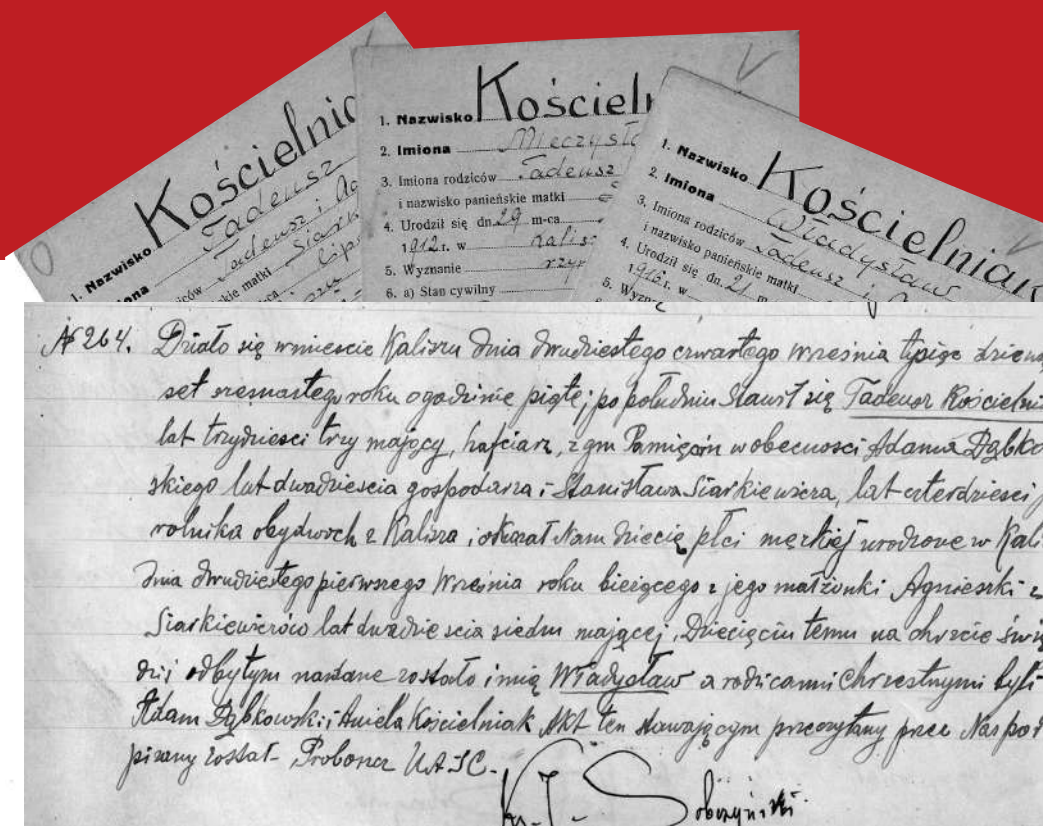 1. Nazwisko Kościelnia
Tadeusz
Tadeusz i Ag
matki Siark
Lips
1. Nazwisko Kościeln
2. Imiona Mieczysła
3. Imiona rodziców Tadeusz
i nazwisko panieńskie matki
4. Urodził się dn. 29 m-ca
1912 r. w Kalisz
5. Wyznanie rzym
6. a) Stan cywilny
1. Nazwisko Kościelniak
2. Imiona Władysław
3. Imiona rodziców Tadeusz i
i nazwisko panieńskie matki
4. Urodził się dn. 21 m
1916 r. w
5. Wyzn
№ 264. Działo się wmieście Kaliszu dnia dwudziestego czwartego Września tysiąc dziewię
set szesnastego roku ogodzinie piątej po południu Stawił się Tadeusz Kościelnia
lat trzydzieści trzy mający, hafciarz, z gm Pamięcin w obecności Adama Dąbko
skiego lat dwadzieścia gospodarza i Stanisława Siarkiewicza, lat czterdzieści
rolnika obydwóch z Kalisza, i okazał Nam dziecię płci męzkiej urodzone w Kali
dnia dwudziestego pierwszego Września roku bieżącego z jego małżonki Agnieszki z
Siarkiewiczów lat dwadzieścia siedm mającej. Dziecięciu temu na chrzcie świę
dziś odbytym nadane zostało imię Władysław a rodzicami chrzestnymi byli
Adam Dąbkowski i Aniela Kościelniak Akt ten stawającym przeczytany przez Nas pod
pisany został - Proboszcz U.A.S.C. -
Ks. J. Sobczyński